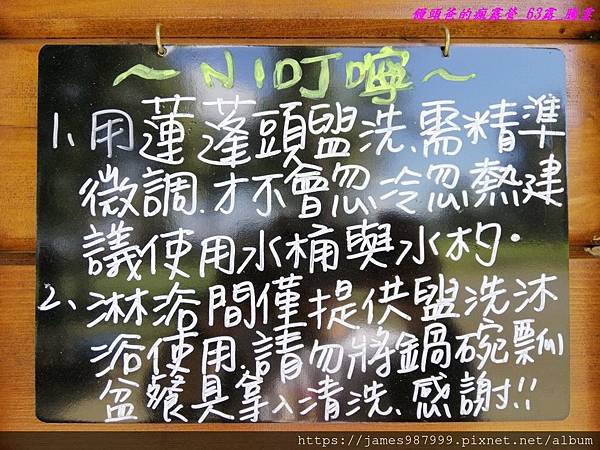 饅頭爸的瘋露營 63露 勝萊
～NI叮嚀～
1、用蓮蓬頭盥洗、需精準
微調、才不會忽冷忽熱建
議使用水桶與水杓．
2、淋浴間僅提供盥洗沐
浴使用、請勿將鍋碗瓢
盆餐具拿入清洗、感謝!!
https://james987999.pixnet.net/album